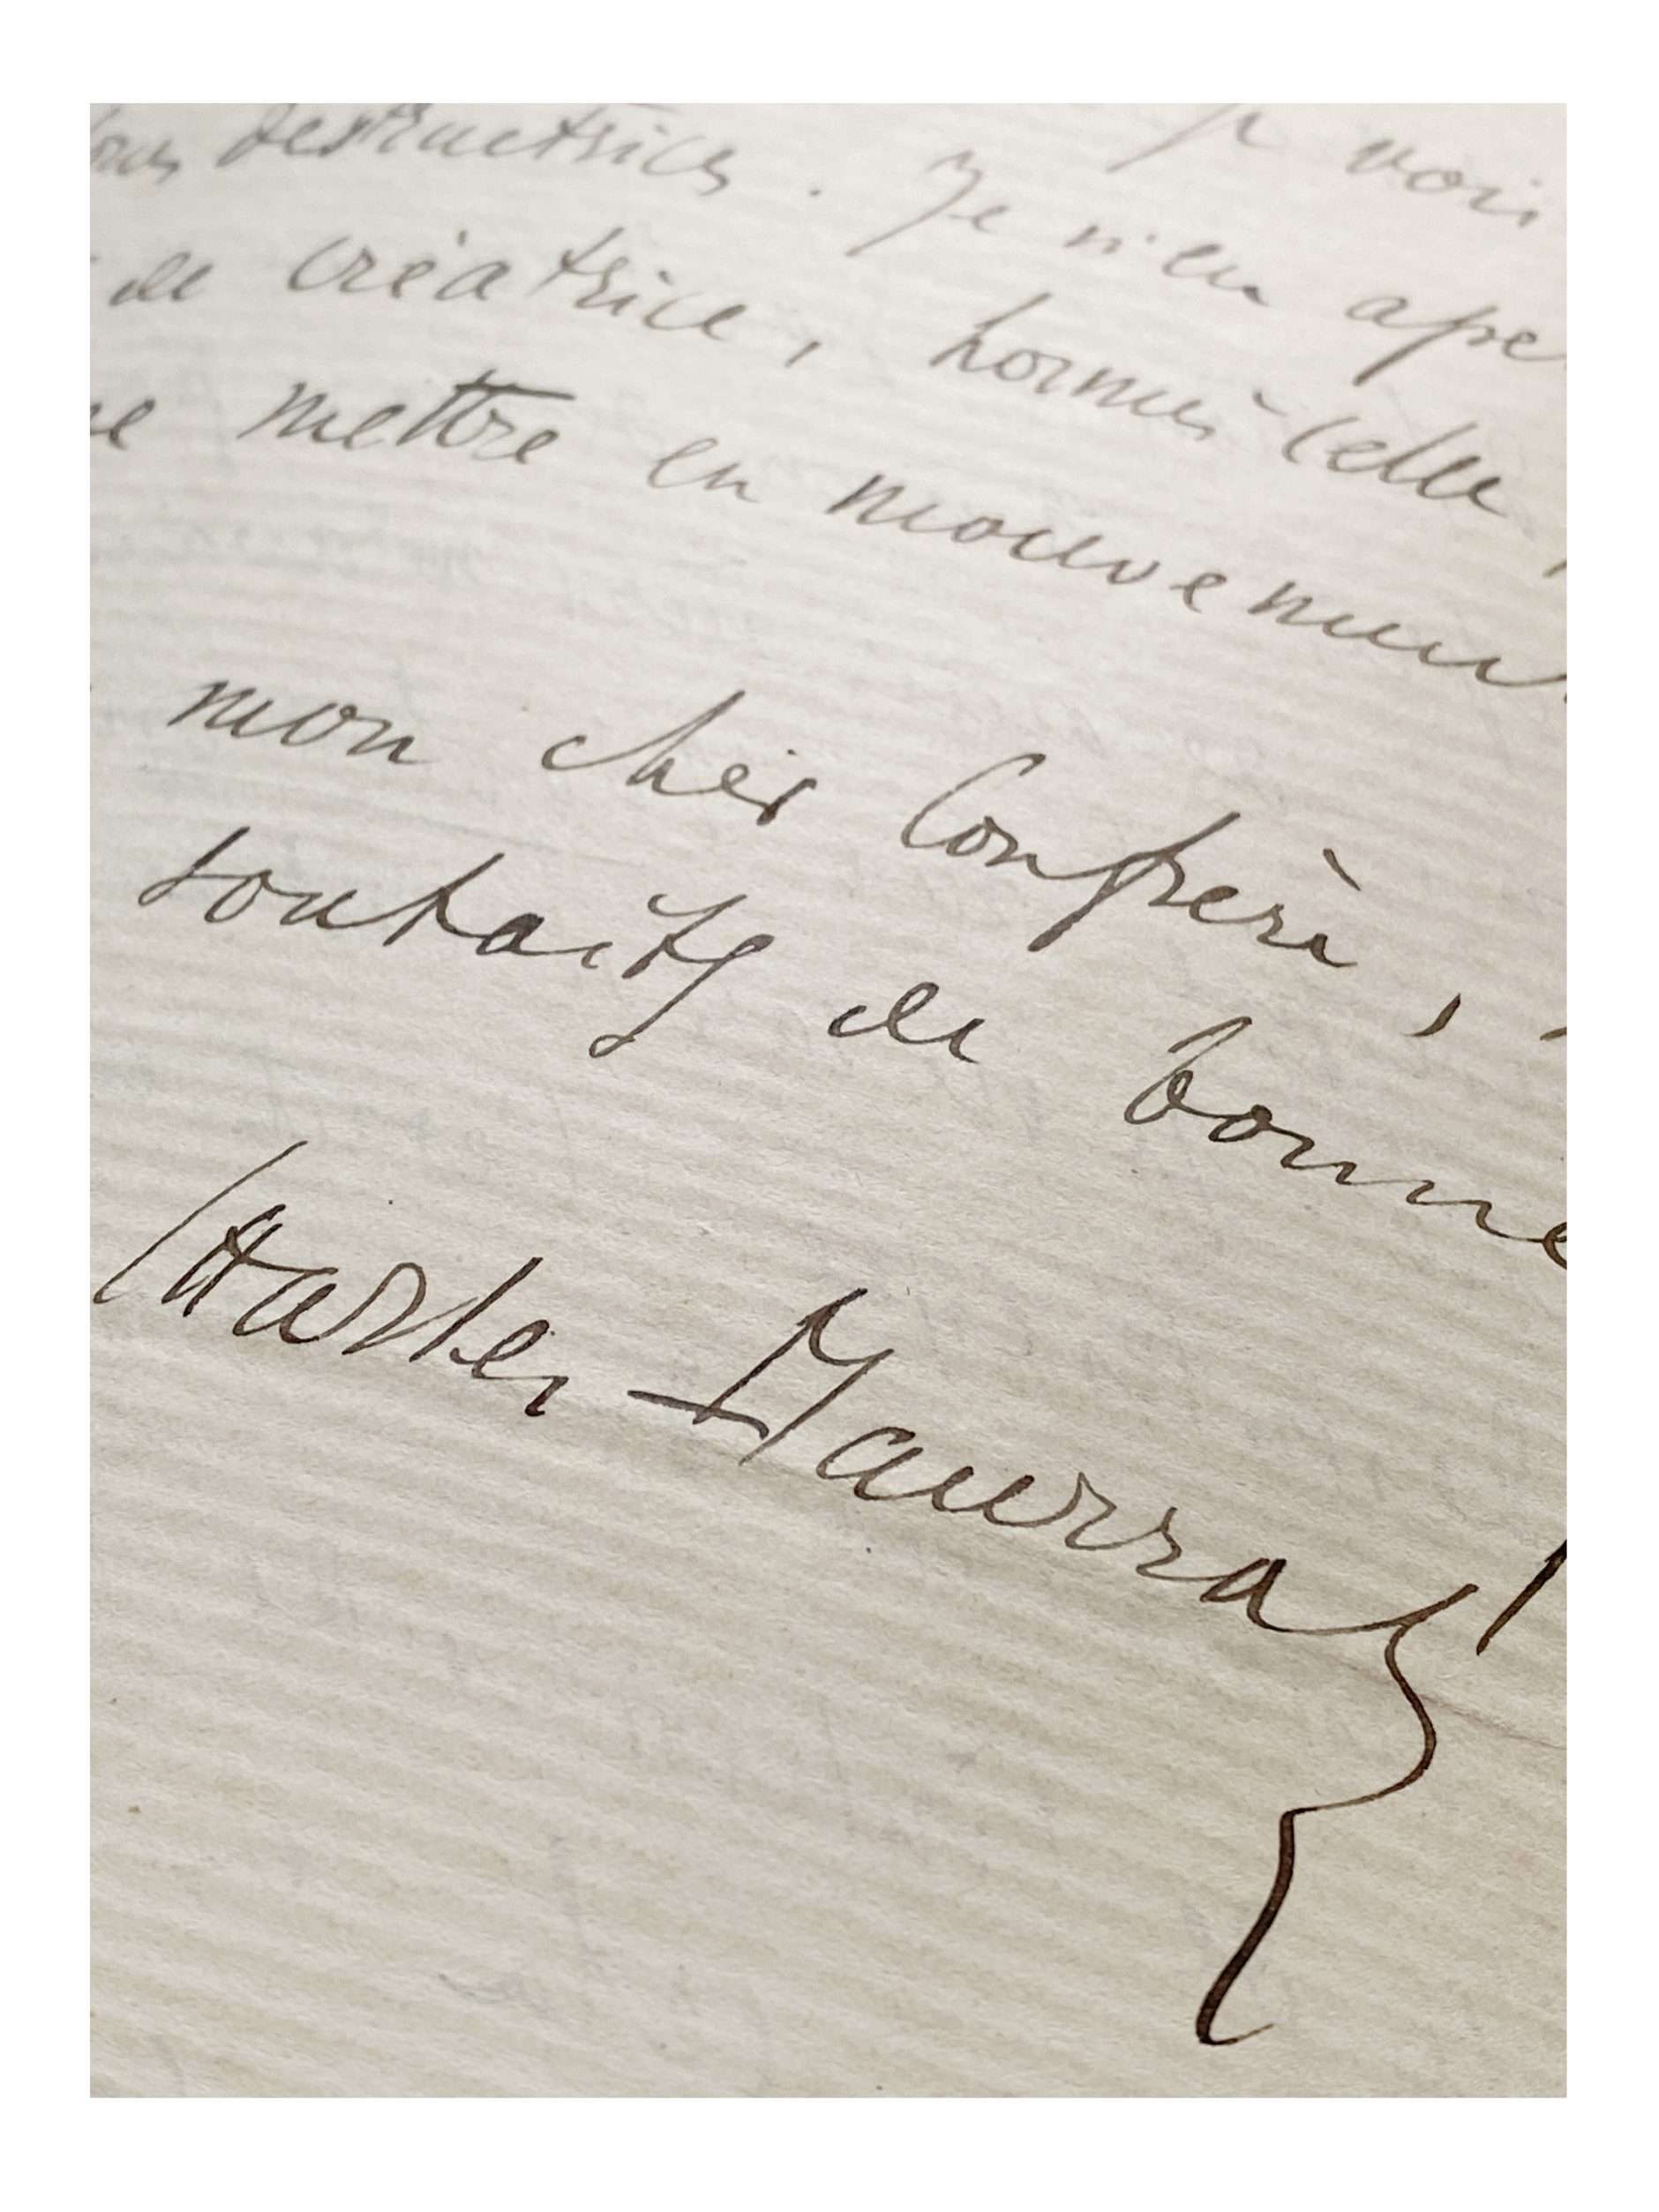 destructrices. Je n'en ape
je vois
de créatrice, hormis celle
mettre en mouvement
mon cher Confrère,
souhaits de bonne
Charles Maurras